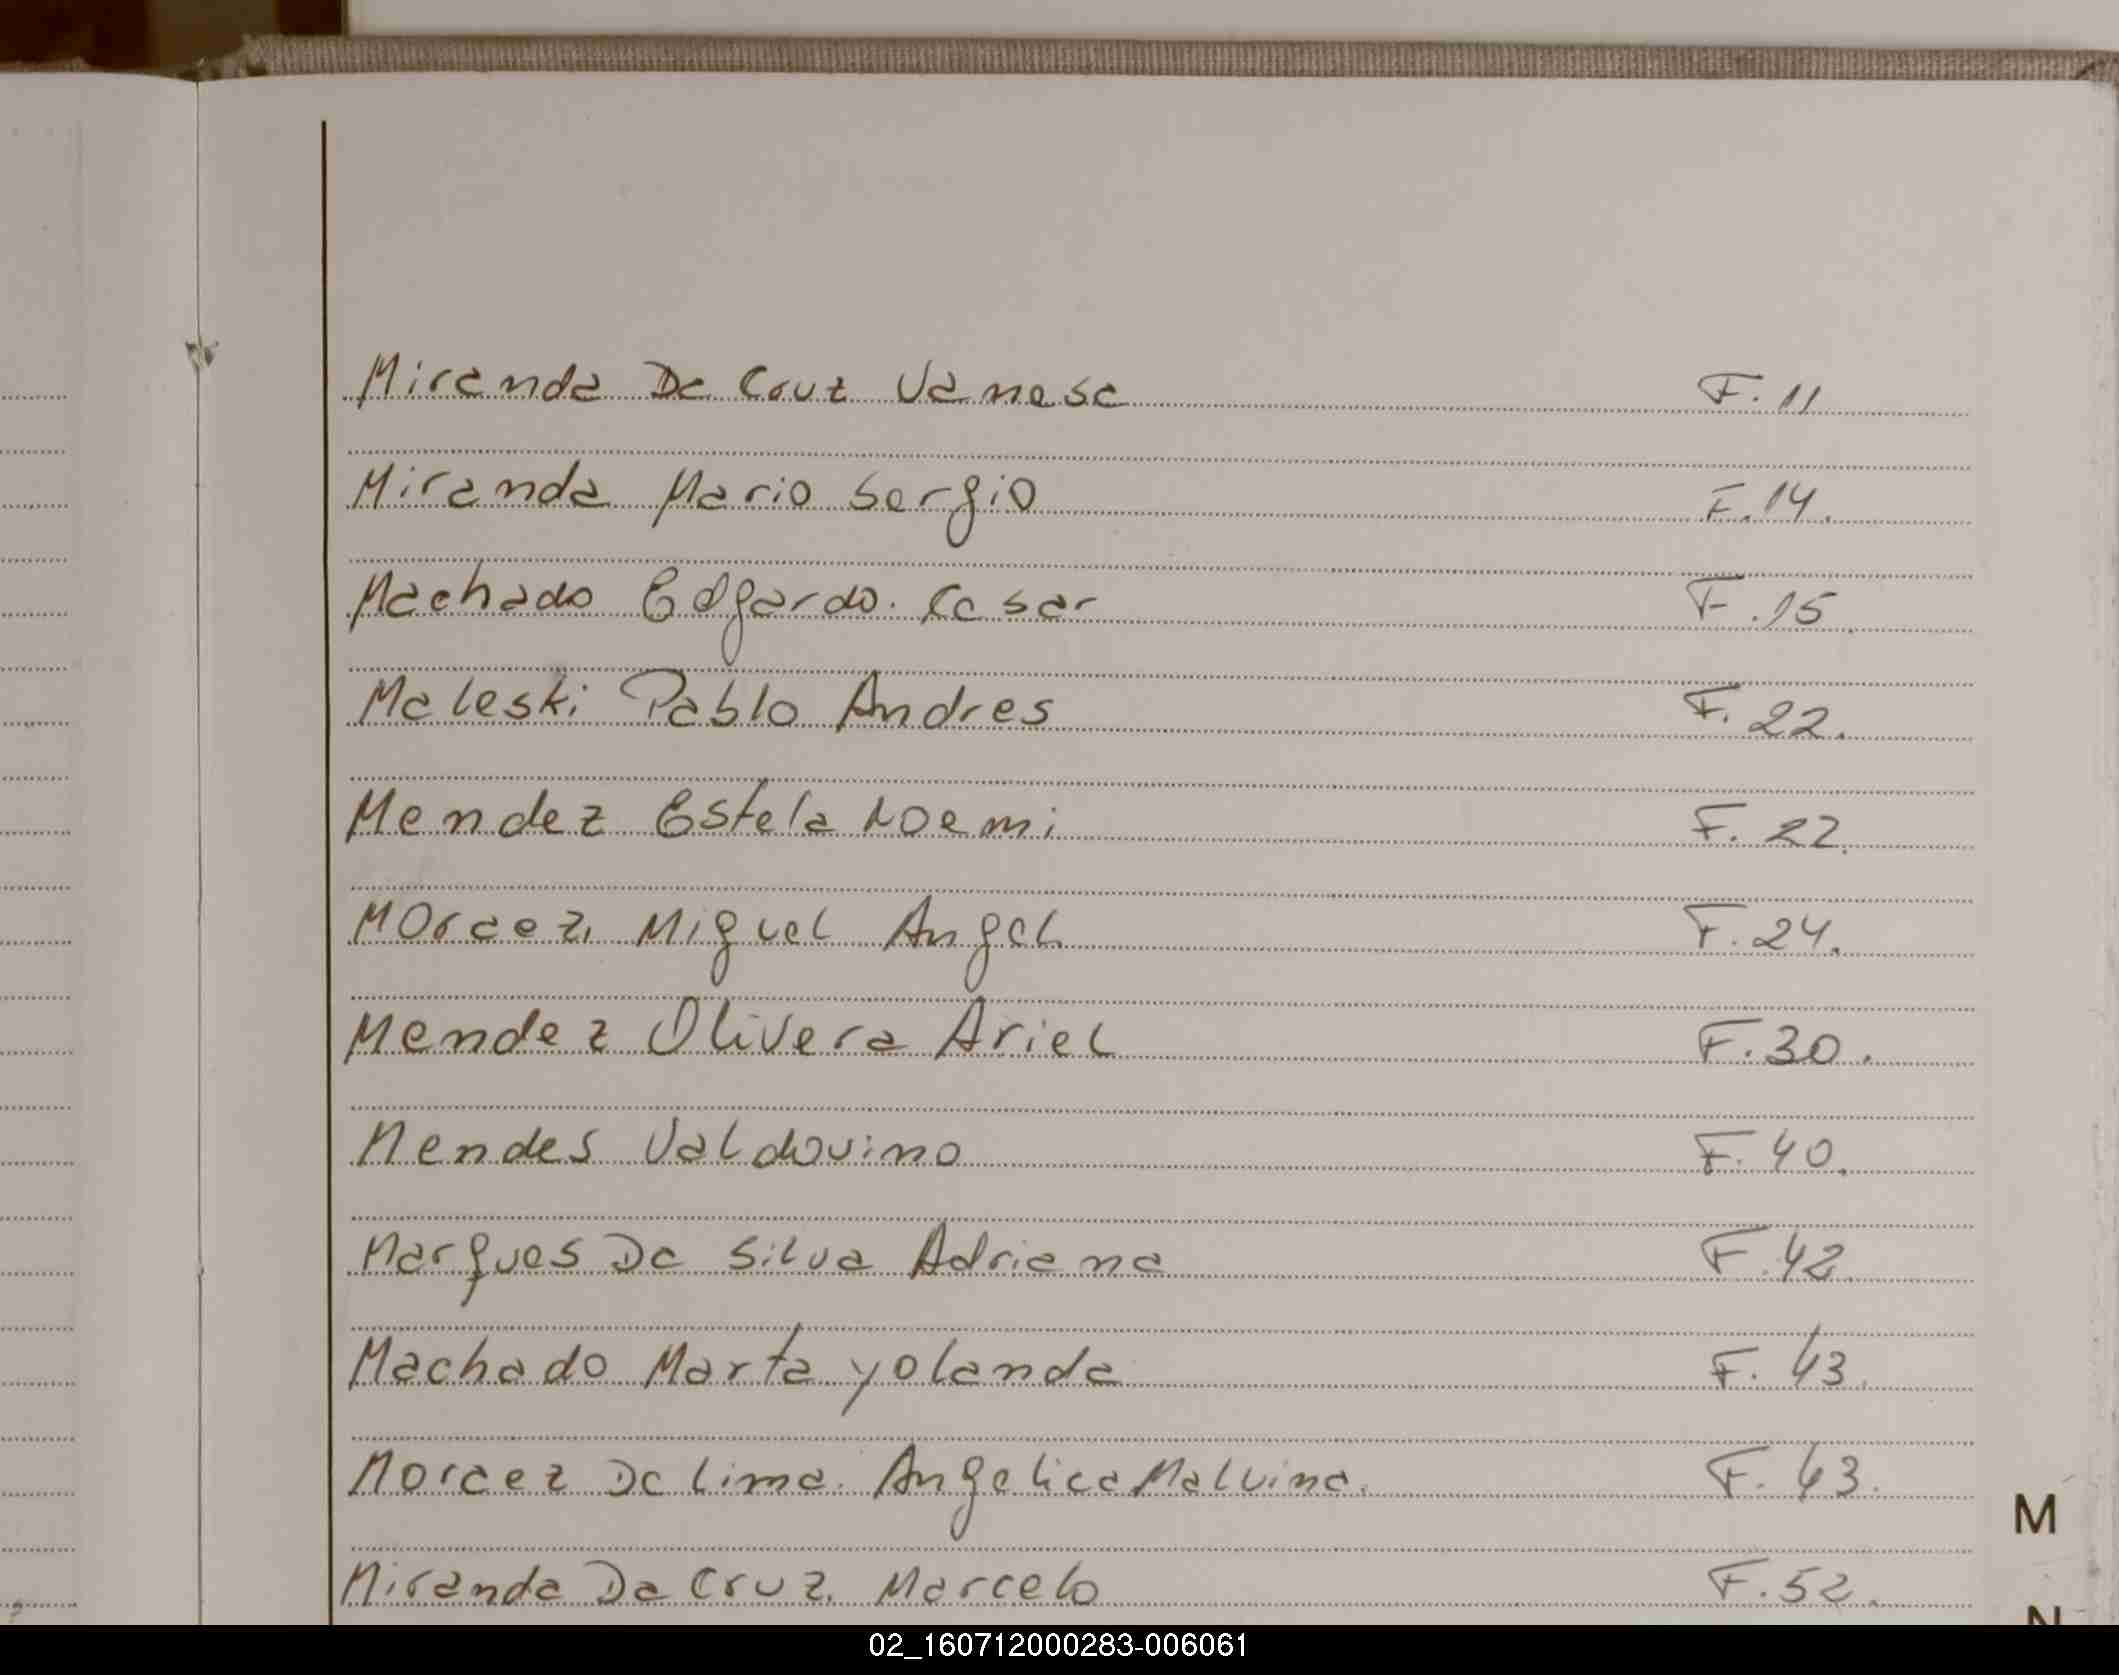 Miranda Da Cruz Vanesa F. 11
Miranda Mario Sergio F. 14.
Machado Edgardo. Cesar F. 15.
Maleski Pablo Andres F. 22.
Mendez Estela Noemi F. 22.
Moraez, Miguel Angel F. 24.
Mendez Olivera Ariel F. 30.
Mendes Valdovino F. 40.
Marques Da Silva Adriana F. 42.
Machado Marta yolanda F. 43.
Moraez Da Lima. Angelica Malvina. F. 43.
M
Miranda Da Cruz. Marcelo F. 52.
N
02_160712000283-006061